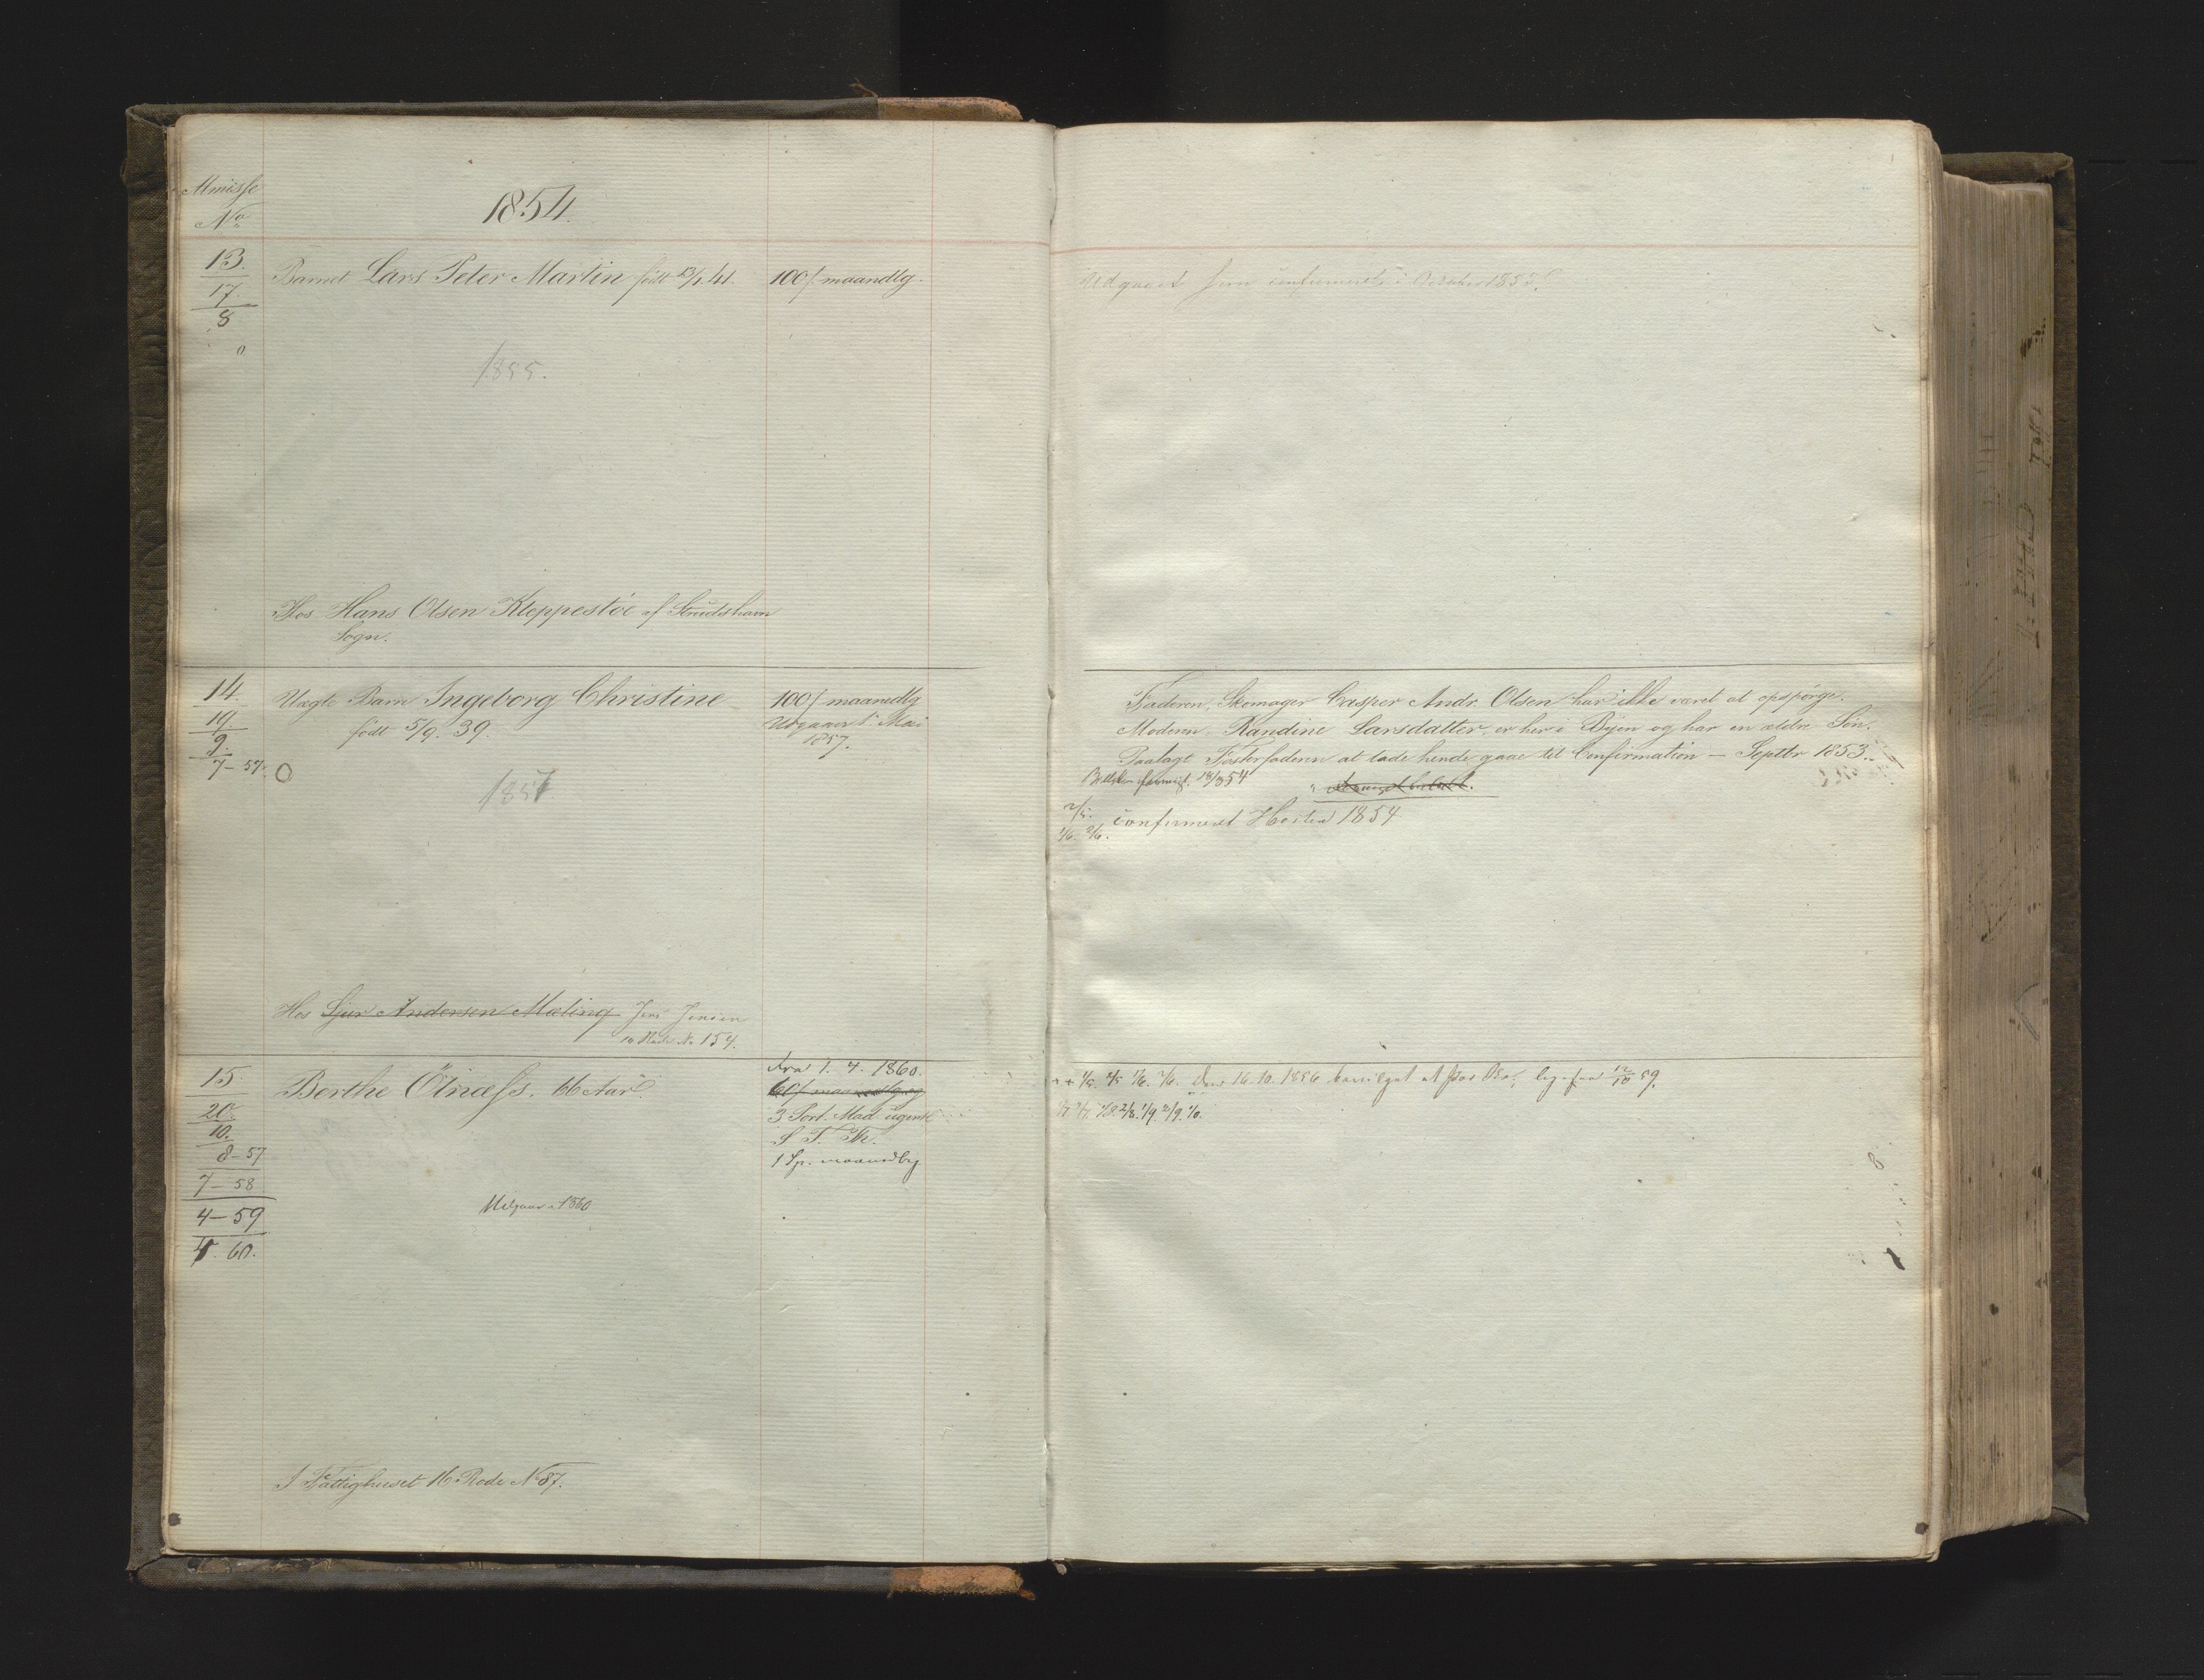 Almisse
No
1854.
13.
17.
8
0
Barnet Lars Peter Martin født 23/1. 41.
100 ß maandlg.
Udgaaet confirmeret i October 1855.
1855.
Hos Hans Olsen Kleppestøe af Strudshavn
Sogn.
14
19
9.
7-57.
Uægte Barn Ingeborg Christine
født 5/9. 39.
100 ß maandlg
Udgaaer 1 Mai
1857.
1857.
Faderen, Skomager Casper Andr. Olsen har ikke været at opspørge.
Moderen, Randine Larsdatter, er her i Byen og har en ældre Søn.
Paalagt Fosterfaderen at lade hende gaae til Confirmation - Septbr 1853.
18/3 54
confirmeret Høsten 1854
Hos Sjur Andersen Mæling Jens Jensen
No 154.
15.
20.
10.
8-57
7-58
4-59
4. 60.
Berthe Ölnæss. 66 Aar.
Fra 1. 4. 1860.
60 ß maanedlg og
3 Port. Mad ugentl
1 Sp. maanedlg
Den 16. 10. 1856 bevilget at 12/10 59.
Udgaaer 1860
I Fattighuset 16 Rode No 87.